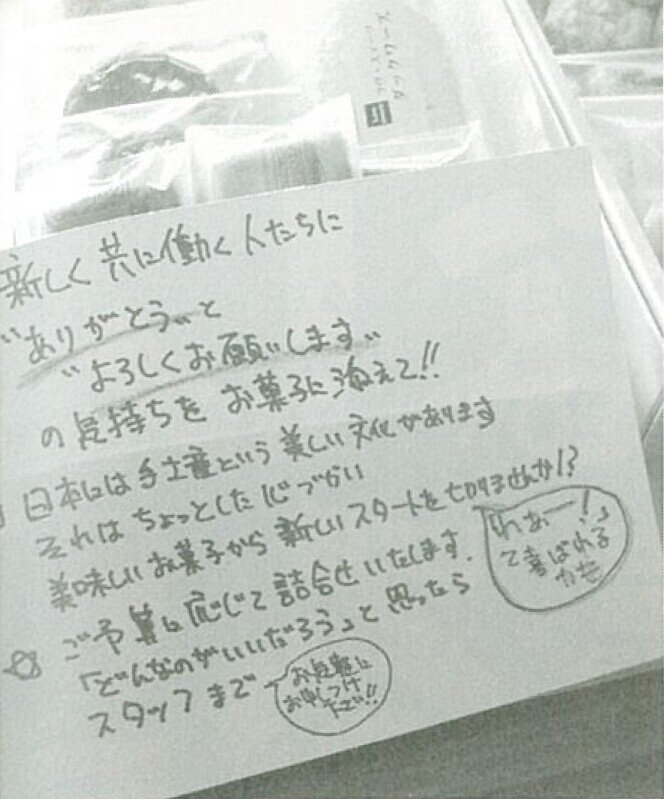 新しく共に働く人たちに
"ありがとう"と
"よろしくお願いします"
の気持ちをお菓子に添えて!!
日本には手土産という美しい文化があります
それはちょっとした心づかい
美味しいお菓子から新しいスタートを切りませんか!?
「わぁー!」
て喜ばれる
☆ご予算に応じて詰合せいたします.
「どんなのがいいだろう」と思ったら
スタッフまで
お気軽に
お申しつけ
下さい!!